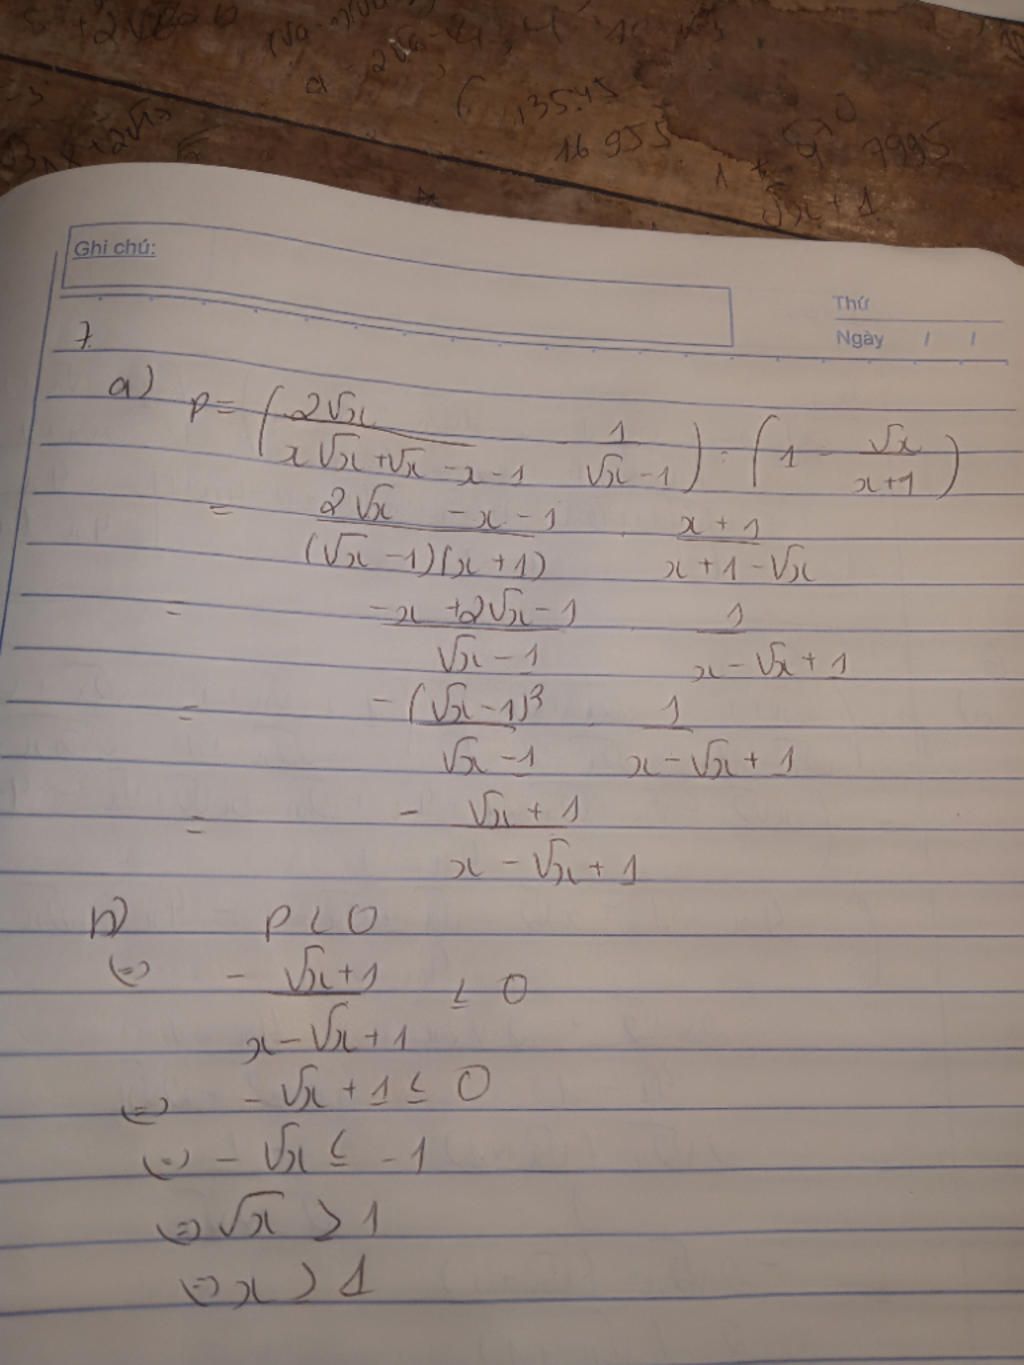 135.45
16 955
7995
1 +
√x + 1
Ghi chú:
Thứ
Ngày / /
7.
a) P = (2√x / (x√x + √x - x - 1) - 1 / (√x - 1)) : (1 - √x / (x + 1))
= (2√x - x - 1) / ((√x - 1)(x + 1)) . (x + 1) / (x + 1 - √x)
= (-x + 2√x - 1) / (√x - 1) . 1 / (x - √x + 1)
= -(√x - 1)² / (√x - 1) . 1 / (x - √x + 1)
= (-√x + 1) / (x - √x + 1)
b) P ≤ 0
⇔ (-√x + 1) / (x - √x + 1) ≤ 0
⇔ -√x + 1 ≤ 0
⇔ -√x ≤ -1
⇔ √x > 1
⇔ x > 1